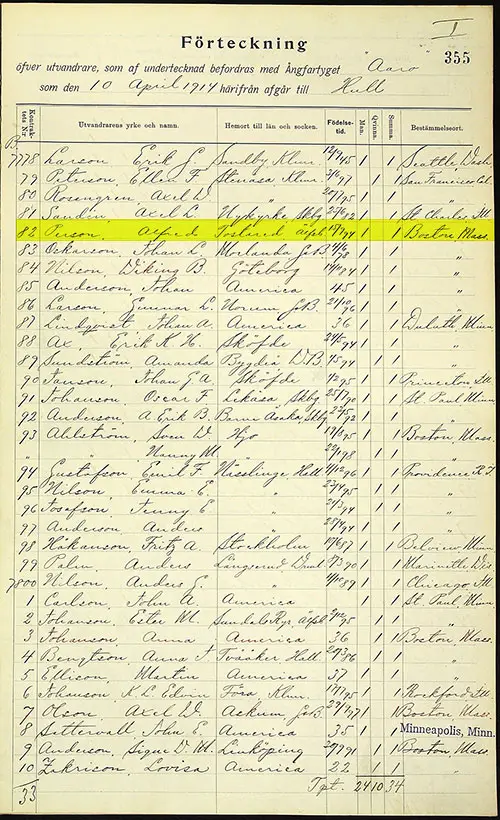 I
355
Förteckning
öfver utvandrare, som af undertecknad befordras med Ångfartyget "Aaro"
som den 10 April 1914 härifrån afgår till Hull
Kontraktets No Utvandrarens yrke och namn. Hemort till län och socken. Födelsetid. Man. Qvinna. Summa. Bestämmelseort.
7778 Larson Erik G. Sandby Klm. 12/9 45 1 1 Seattle Wash
79 Peterson, Ellen F. Stenåsa Klm. 97 1 1 San Francisco Cal.
80 Rosengren Axel W. " 95 1 1 "
81 Sandén Axel L. Nykyrke Skbg 92 1 1 St Charles Ill
82 Person, Alfred Tostared Älfsb. 94 1 1 Boston, Mass.
83 Oskarson, Johan L. Morlanda GoB 98 1 1 "
84 Nilson, Wiking B. Göteborg 94 1 1 "
85 Anderson, Johan America 45 1 1 "
86 Larson, Gunnar L. Norum GoB. 21/10 96 1 1 "
87 Lindqvist Johan A. America 36 1 1 Duluth, Minn
88 Ax, Erik K. H. Sköfde 94 1 1 "
89 Sundström, Amanda Bygdeå W.B. 94 1 1 "
90 Janson, Johan G. A. Sköfde 95 1 1 Princeton Ill.
91 Johanson, Oscar F. Skbg 90 1 1 St. Paul Minn
92 Anderson A Erik B. Skbg 92 1 1 "
93 Ahlström, Sven D. Hjo 95 1 1 Boston Mass.
" " Nanny M. " 98 1 1 "
94 Gustafson, Emil F. Wässlinge Hall. 96 1 1 Providence R.I.
95 Nilson, Emma E. " 23/4 95 1 1 "
96 Josefson, Jenny E " 24/3 94 1 1 "
97 Anderson Anders " 94 1 1 "
98 Håkanson, Fritz A. Stockholm 87 1 1 Belview Minn
99 Palm, Anders Långerud 90 1 1 Marinette Wis
7800 Nilson, Anders G. " 89 1 1 Chicago Ill
1 Carlson, John A. America 1 1 St. Paul, Minn
2 Johanson Eiler M. Sundals Ryr Älfsb. 95 1 1 "
3 Johanson, Anna America 36 1 1 Boston, Mass.
4 Bengtson, Anna A Tvååker Hall. 86 1 1 "
5 Ellison, Martin America 37 1 1 "
6 Johanson K. L. Edvin Föra, Klm. 95 1 1 Rockford Ill
7 Olson, Axel W. Askum GoB 1 1 Boston, Mass.
8 Setterwall, John E. America 35 1 1 Minneapolis, Minn.
9 Anderson, Signe D. M. Linköping 91 1 1 Boston, Mass.
10 Zakrison, Lovisa America 22 1 1 "
33 Tpt. 24 10 34